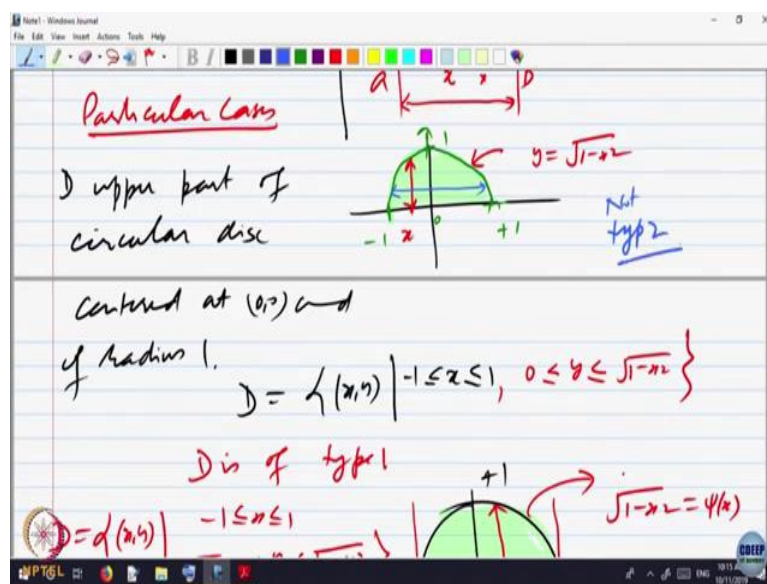 Note1 - Windows Journal
File Edit View Insert Actions Tools Help
B I
a x x D
Particular Cases
1 y = √1-x2
D upper part of
circular disc
-1 x 0 +1
Not
typ2
centered at (0,0) and
of radius 1.
D = {(x,y) | -1 ≤ x ≤ 1, 0 ≤ y ≤ √1-x2 }
D is of type 1
+1
√1-x2 = ψ(x)
D = {(x,y) | -1 ≤ x ≤ 1
NPTEL
CDEEP
ENG
10:15 A
10/11/2019